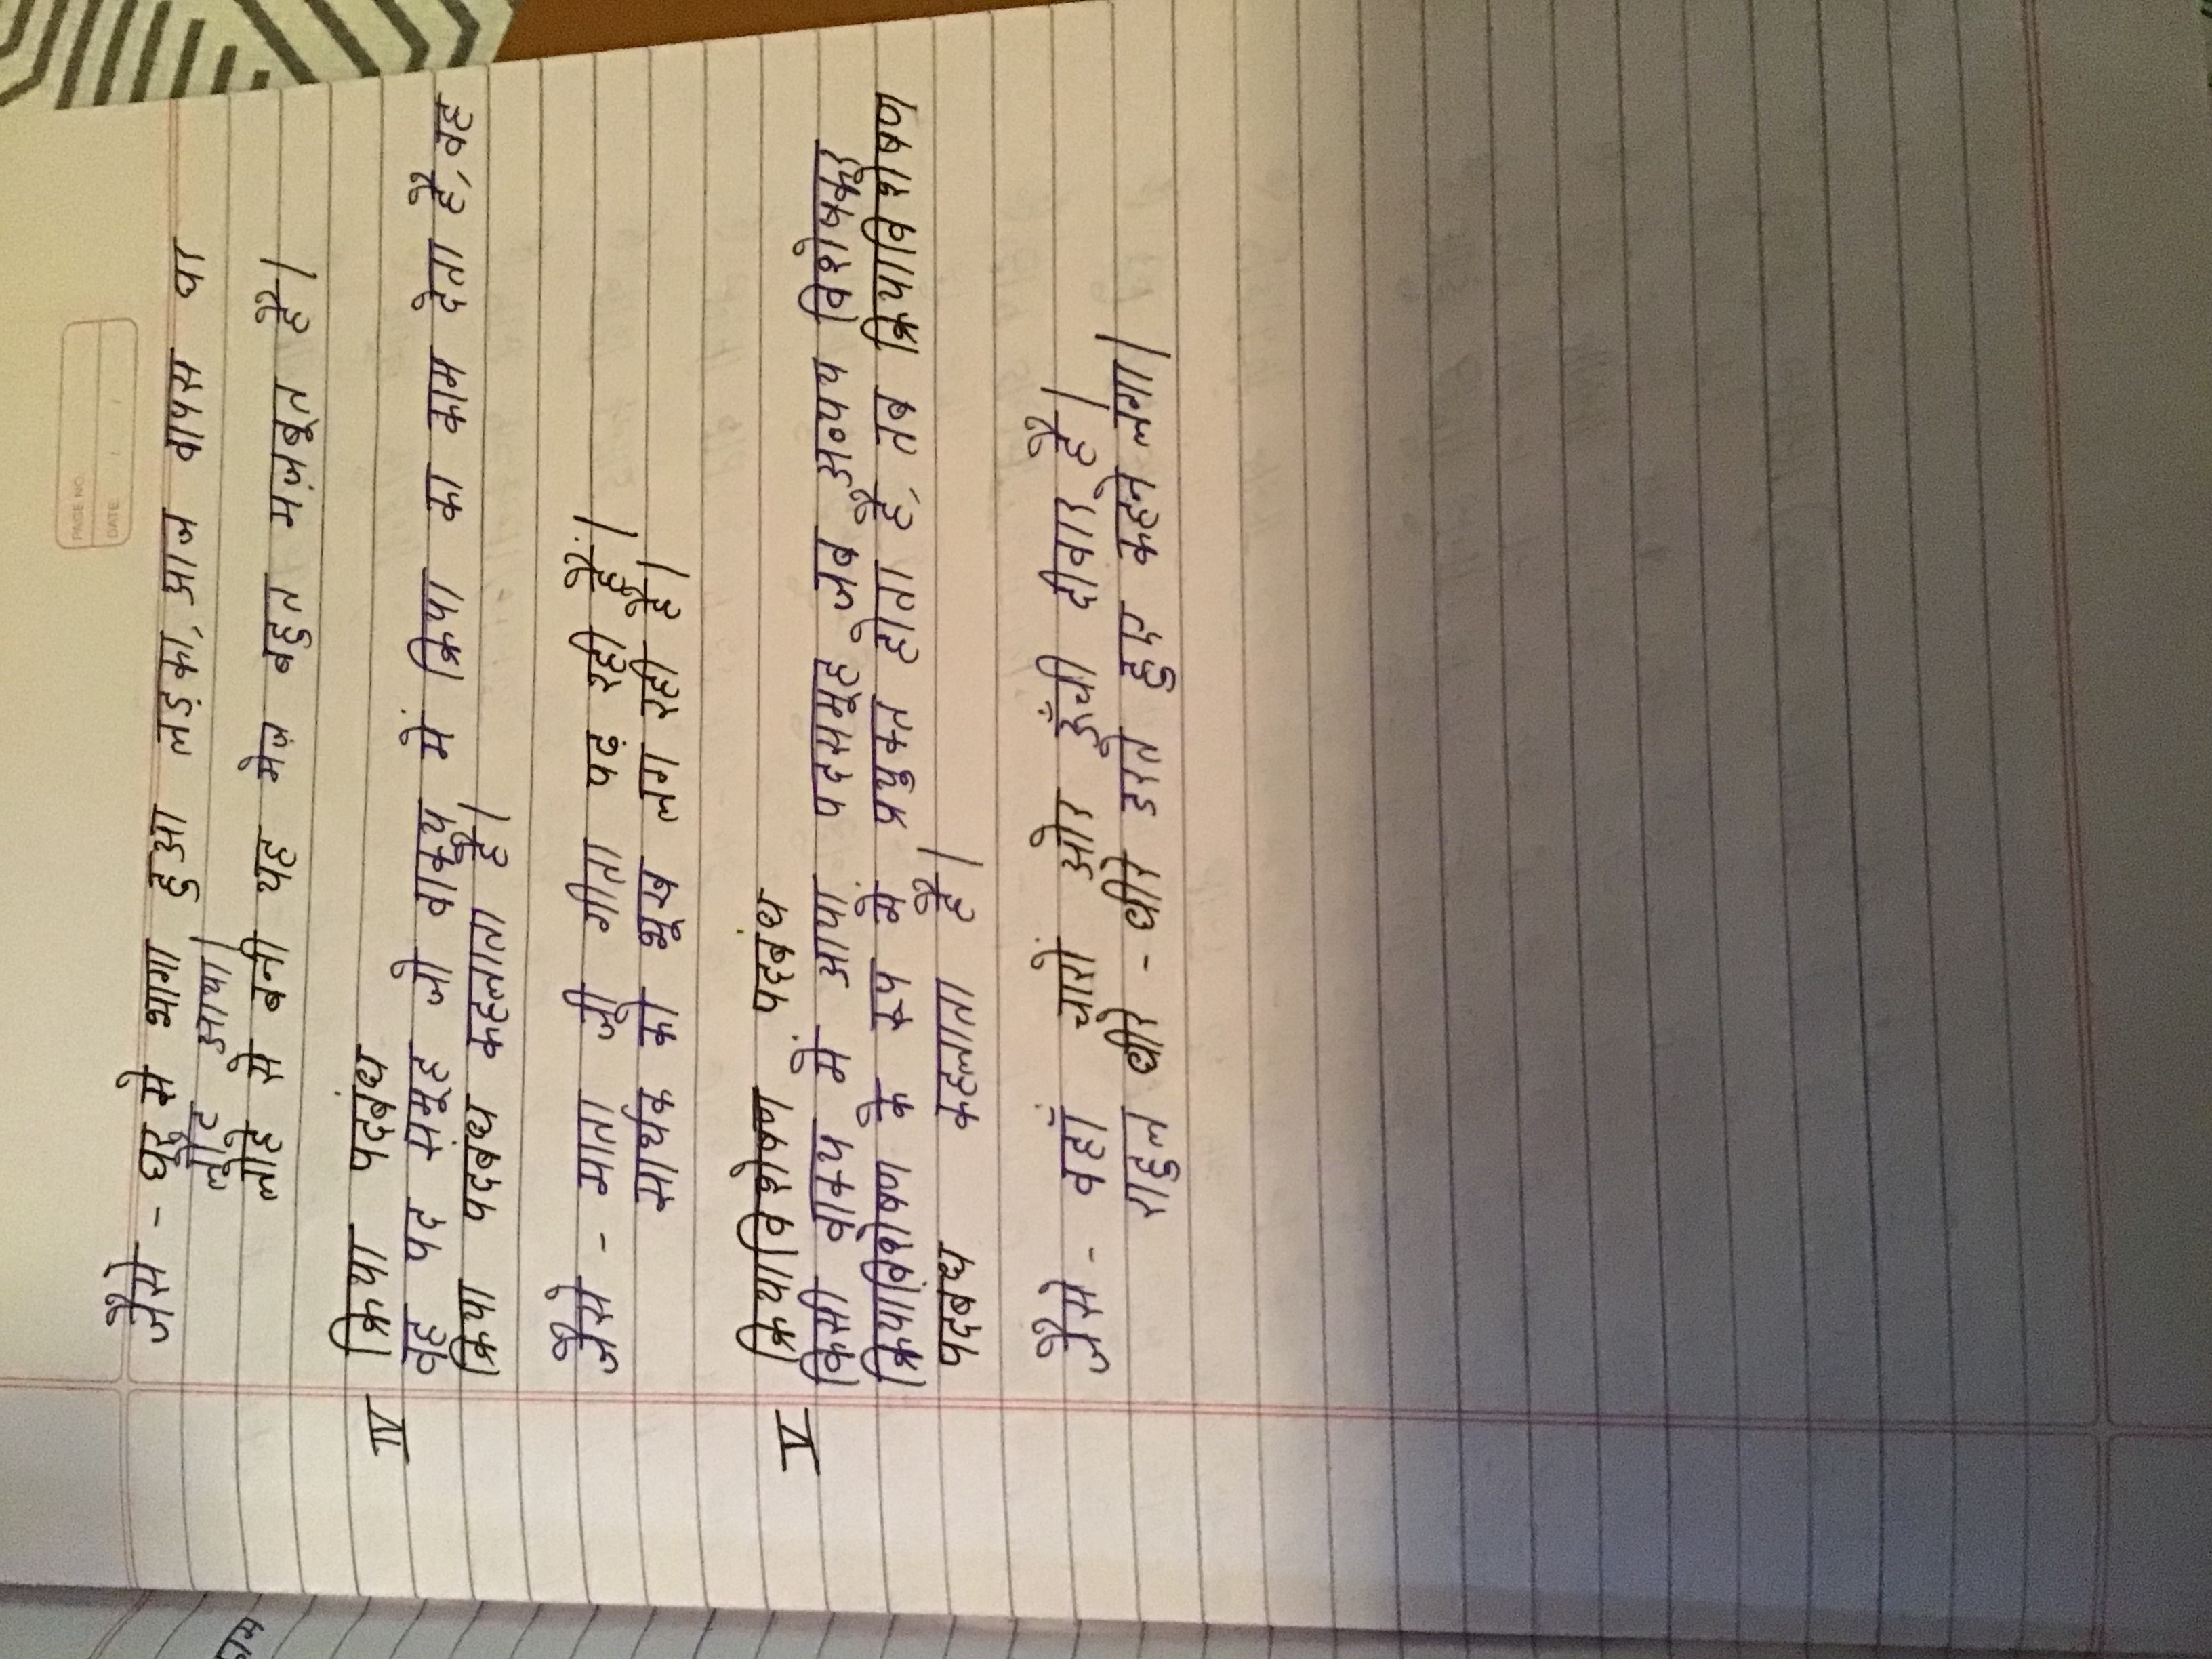 PAGE NO.
DATE: / /
जैसे - घर से भागा हुआ लड़का, आज वापस घर
लौट आया।
लोहे से बनी यह मेज़ बहुत मज़बूत है।
IV क्रिया पदबंध
वह पद समूह जो वाक्य में क्रिया का काम देता है, वह
क्रिया पदबंध कहलाता है।
जैसे - माता जी गीता पढ़ रही हैं।
सार्थक को भूख लग रही है।
V क्रियाविशेषण पदबंध
किसी वाक्य में आया पदसमूह जब अव्यय विशेषकर
क्रियाविशेषण के रूप में प्रयुक्त होता है, तब क्रियाविशेषण
पदबंध कहलाता है।
जैसे - वहाँ चारों ओर ऊँची दीवार है।
राहुल धीरे - धीरे डरते हुए कहने लगा।